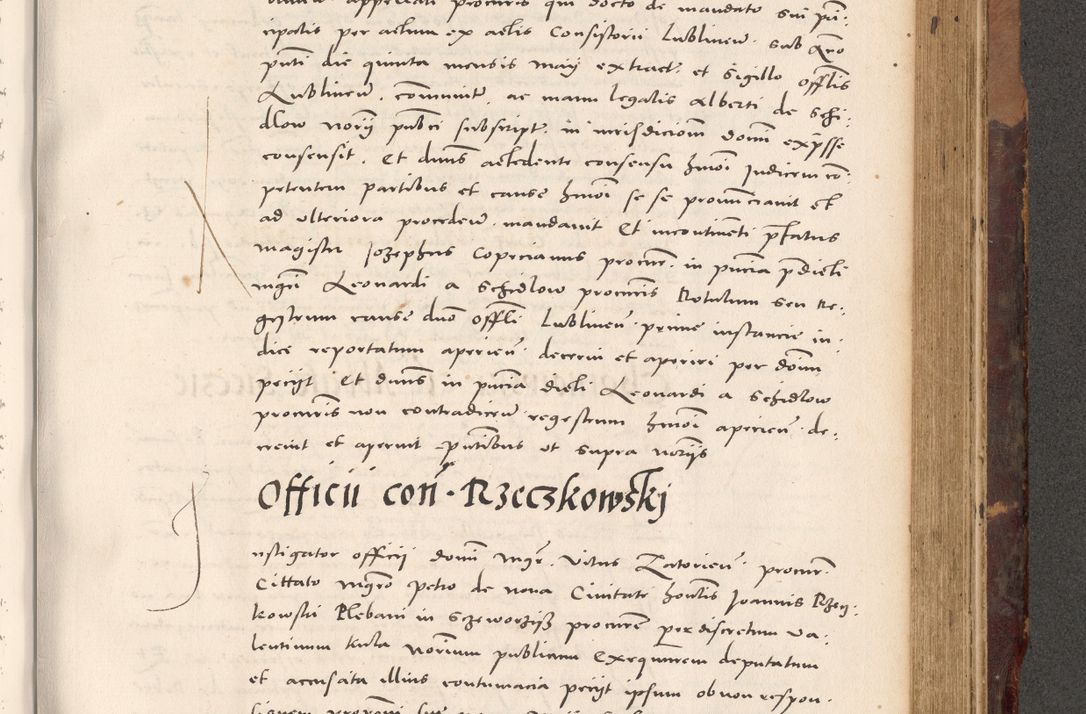 appellati procuris qui docto de mandato sui prin:
cipalis per actum ex actis Consistorii Lublinen. sub dno
punti die quinta mensis maij extract. et sigillo offlis
Lublinen. communit. ac manu legalis Alberti de Schi:
dlow norii publici subscript. in iurisdictiom domi expsse
consensit. Et dnus accedente consensu hmoi Judicem co:
petentem partibus et cause hmoi se se pronunciavit et
ad ulteriora proceden. mandavit Et incontinenti pfatus
magister Jozephus Coprcianus procur. in pncia pdicti
mgri Leonardi a Schidlow procuris Rotulum seu Re:
gestrum cause duo offli Lublinen prime instancie in:
dice reportatum aperien decerni et aperiri per domi
peciit Et dnus in pncia dicti Leonardi a Schidlow
procuris non contradicen regestrum hmoi aperien de:
crevit et aperuit pntibus ut supra noriis
Officii con. Rzeczkowskj
Instigator officii domi mgr. Vitus Zatorien procur.
Cittato mgro petro de nova Civitate honlis Joannis Rzecz:
kowski Plebani in procurem per discretum Va:
lentinum Kula norium publicum Exequutorem deputatum
et accusata illius contumacia peciit ipsum ob non respon: